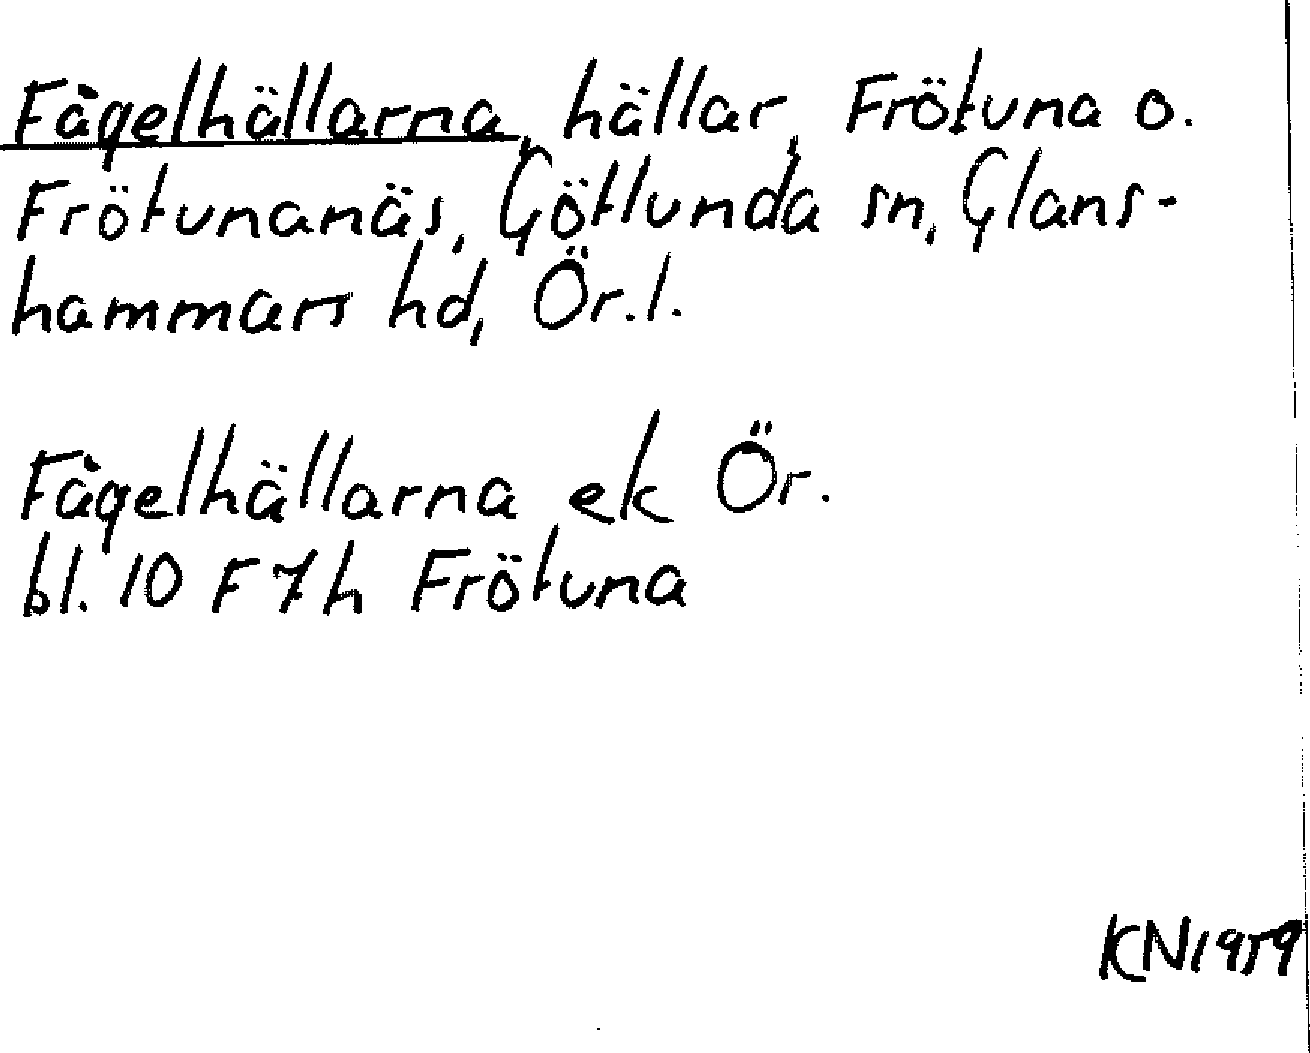 Fågelhällarna, hällar, Frötuna o.
Frötunanäs, Götlunda sn, Glans-
hammars hd, Ör.l.
Fågelhällarna ek Ör.
bl. 10 F 7h Frötuna
KN1959